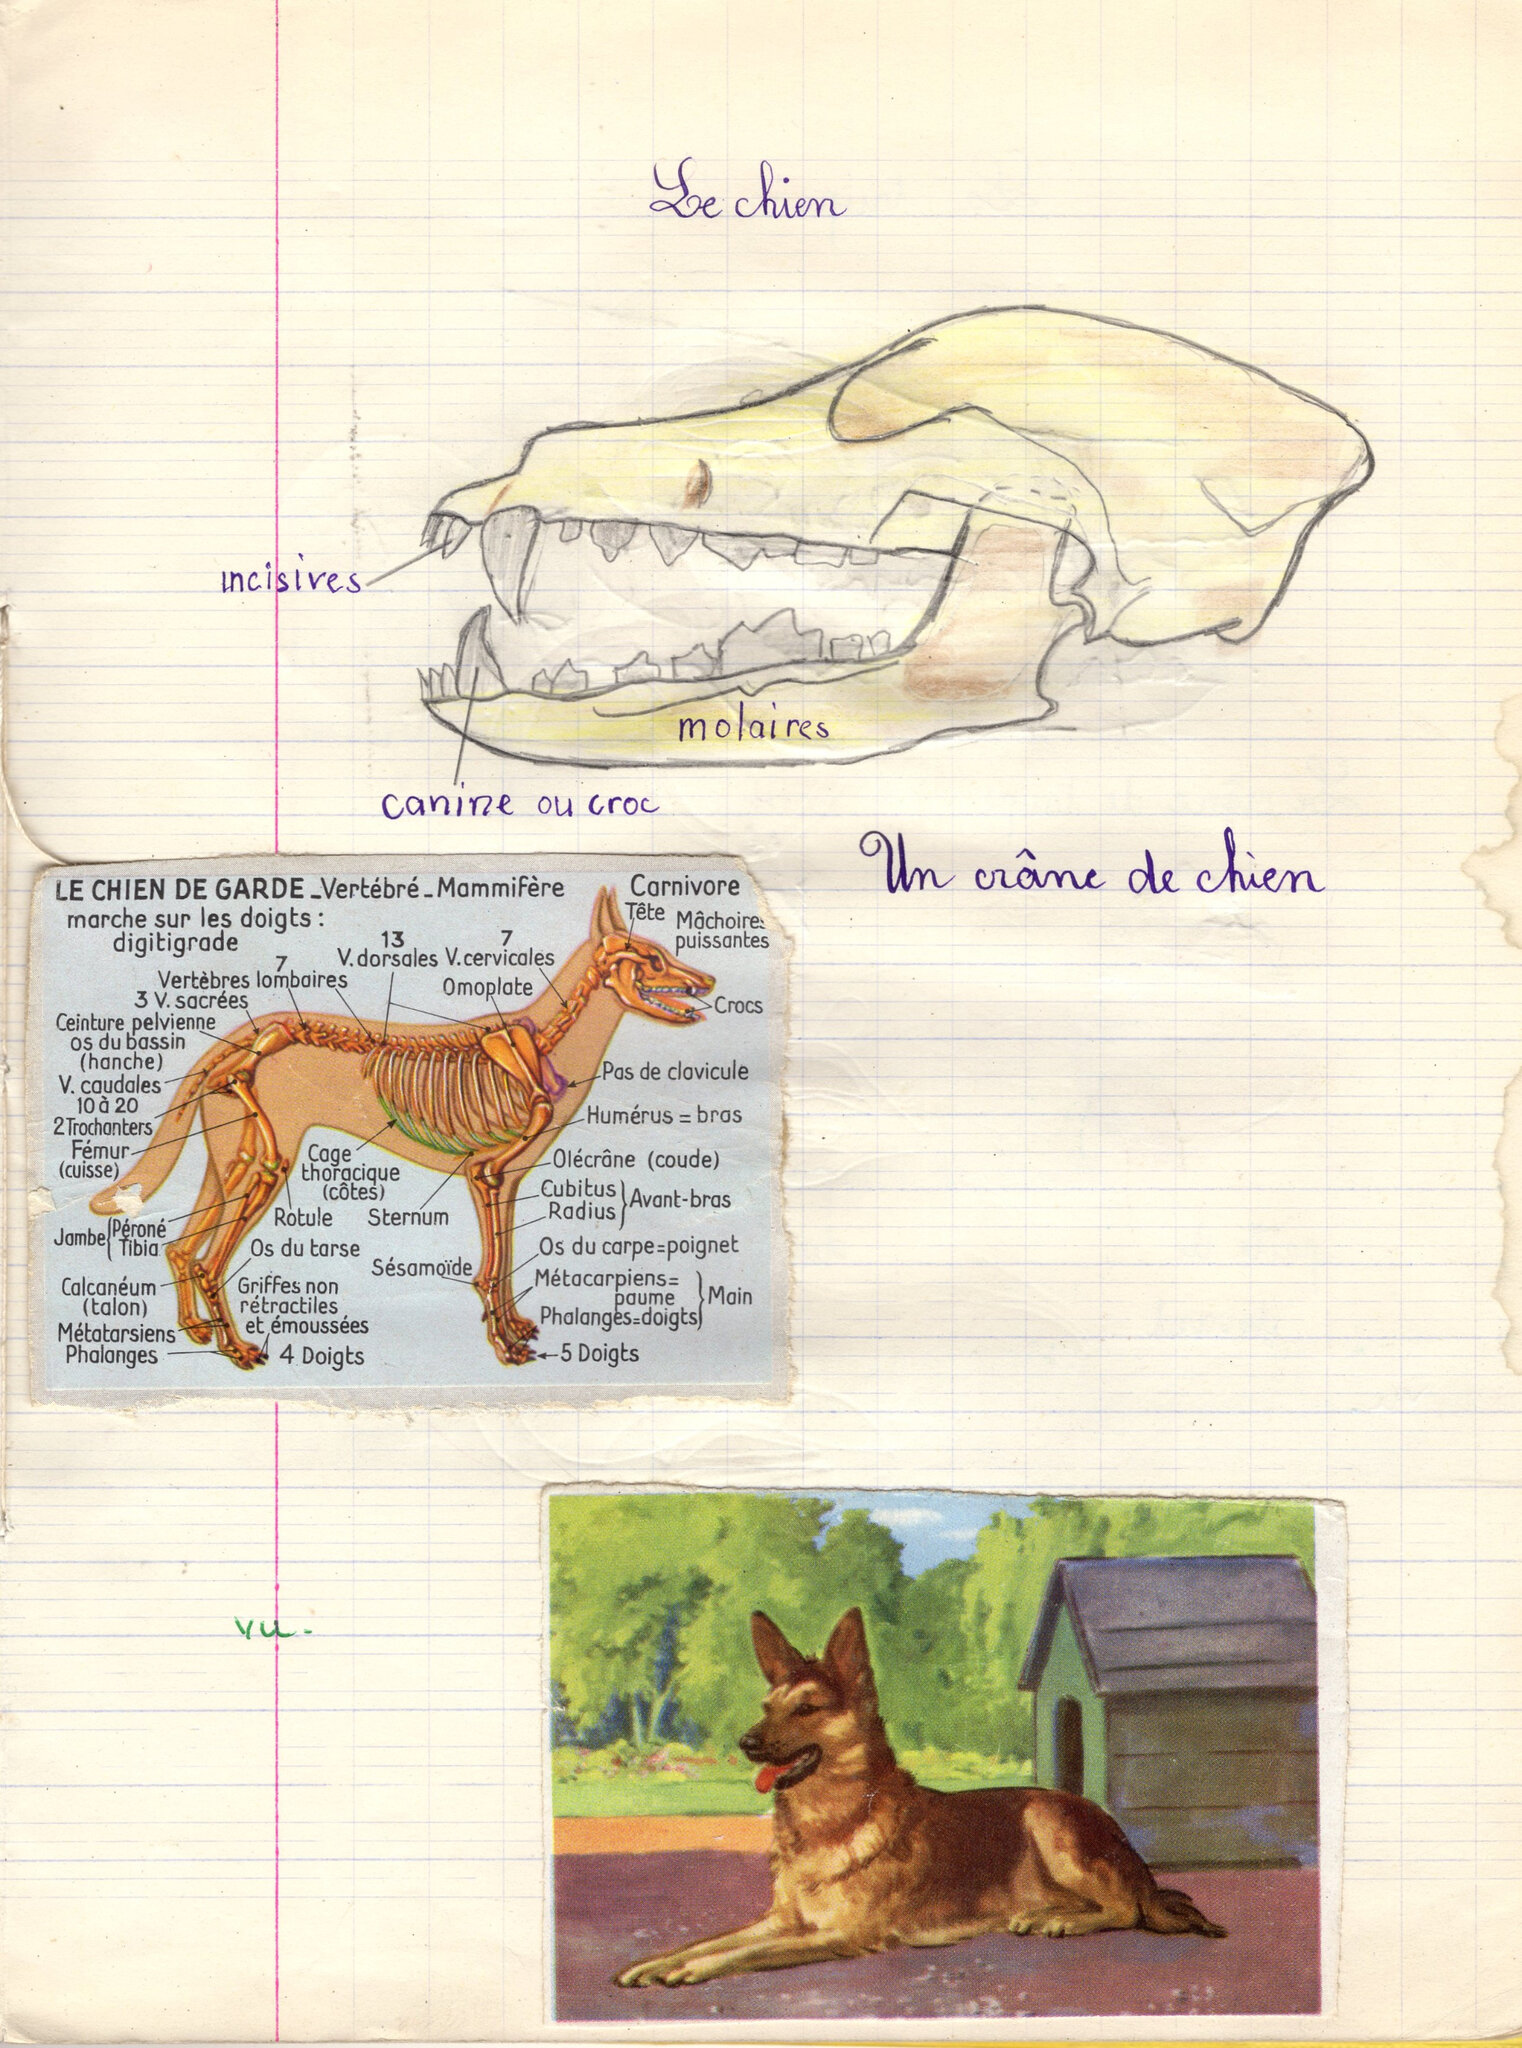 Le chien
incisives
molaires
canine ou croc
Un crâne de chien
LE CHIEN DE GARDE_Vertébré_Mammifère
Carnivore
marche sur les doigts :
digitigrade
Tête
Mâchoires
puissantes
13
V. dorsales
7
V. cervicales
7
Vertèbres lombaires
Omoplate
3 V. sacrées
Crocs
Ceinture pelvienne
os du bassin
(hanche)
V. caudales
10 à 20
Pas de clavicule
2 Trochanters
Humérus = bras
Fémur
(cuisse)
Cage
thoracique
(côtes)
Olécrâne (coude)
Cubitus
Radius
Avant-bras
Rotule
Sternum
Jambe
Péroné
Tibia
Os du tarse
Sésamoïde
Os du carpe=poignet
Calcanéum
(talon)
Griffes non
rétractiles
et émoussées
Métacarpiens=
paume
Phalanges=doigts
Main
Métatarsiens
Phalanges
4 Doigts
5 Doigts
vu-